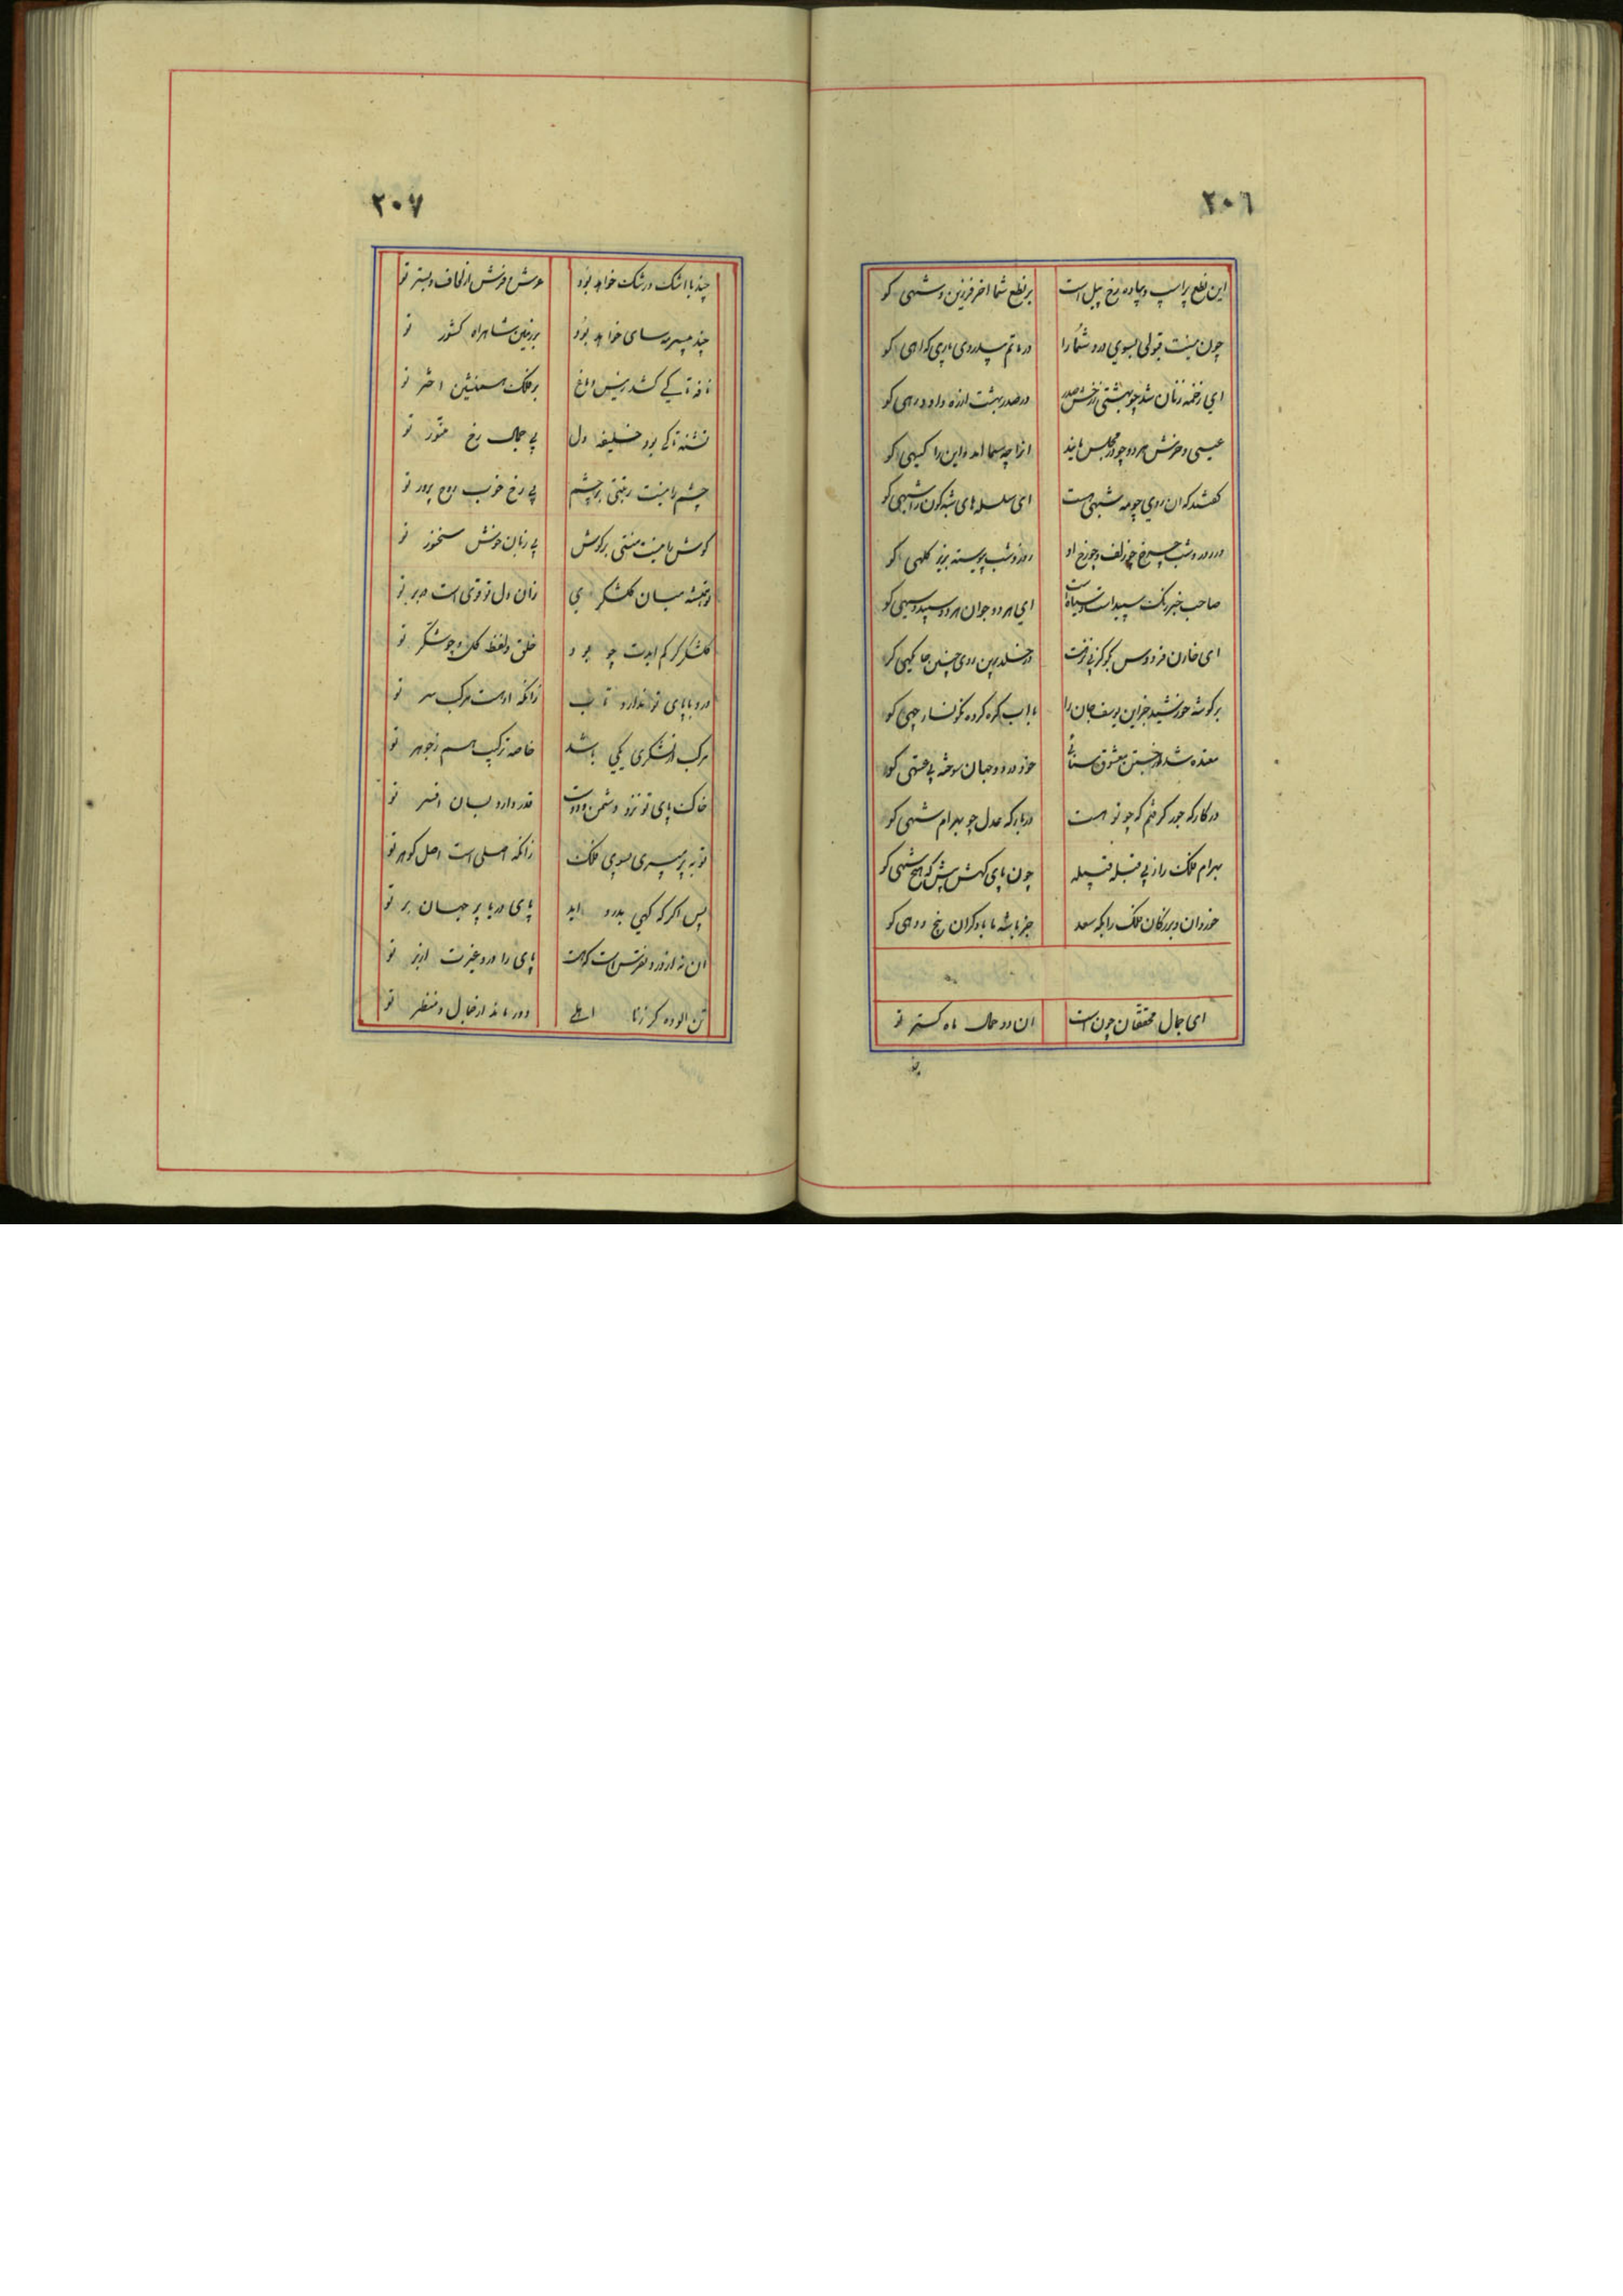 ٢٠٦
این نطع پر اسپ و پیاده رخ پیل است بر نطع شما اخر فرزین و شهی کو
چون نیست قبولی بسوی درد شما را در ماتم بیدردی ماری کواهی کو
ای زخمه زنان شد چو بهشتی ز رخش صدر در صدر بهشت ارزه داود رهی کو
عیسی و خرش هر دو چو در مجلس مایند انرا چه سما امد و این را کیهی کو
کفتند که ان روی چو مه شبهی هست ای سلسله های شبه کون را شبهی کو
در روز و شب چرخ چو زلف و چو رخ او روز و شب پیوسته بریز کلهی کو
صاحب خبر رنک سپید است و سیاه است ای هر دو جوان هر دو سپید و سیهی کو
ای خازن فردوس بکو کز پی نزهت در خلد برین روی چنین جا یکهی کو
بر کوشه خورشید جز این یوسف جان را با اب کره کرده نکونسار چهی کو
معده شد از خستن معشوق سنائی خود در دو جهان سوخته بی عشق کو
در کارکه جور کرفتم که چو تو هست در بارکه عدل چو بهرام شهی کو
بهرام فلک را ز پی قبله قبیله چون پای کهش پیش که هیچ شهی کو
خردان و بزرکان فلک را بکه سعد جز باشه ما باد کران پنج دو دهی کو
ای جمال محققان چون است ان دو حمال ماه کستر تو
٢٠٧
چند با اشک و رشک خواهد بود عرش و فرش از لحاف و بستر تو
چند بی سرمه سای خواهد بود بر زمین شاهراه کشور تو
نافه تا کی کشد رئیس دماغ بر فلک همنشین اختر تو
تشنه تا کی بود خلیفه دل بی جمال رخ منور تو
چشم را نیست رغبتی بر چشم بی رخ خوب روح پرور تو
کوش را نیست منتی بر کوش بی زبان خوش سخنور تو
تو نشسته میان کلشکر ی زان دل تو قوی است در بر تو
کلشکر کر کم ایدت چو بود خلق و لفظ کل و چو شکر تو
درد با پای تو ندارد تاب زانکه اوست مرکب سر تو
مرکب از لشکری یکی باشد خاصه ترکیب جسم و جوهر تو
خاک پای تو نزد دشمن و دوست قدر دارد بسان افسر تو
تو به پر می پری بسوی فلک زانکه اصلی است اصل کوهر تو
پس اکر که کهی بدرد اید پای در با پر جهان بر تو
ان نه از درد نقرس است که هست پای را درد غیرت از پر تو
تن الوده کر ز نا اهلی دور ماند از خیال و منظر تو